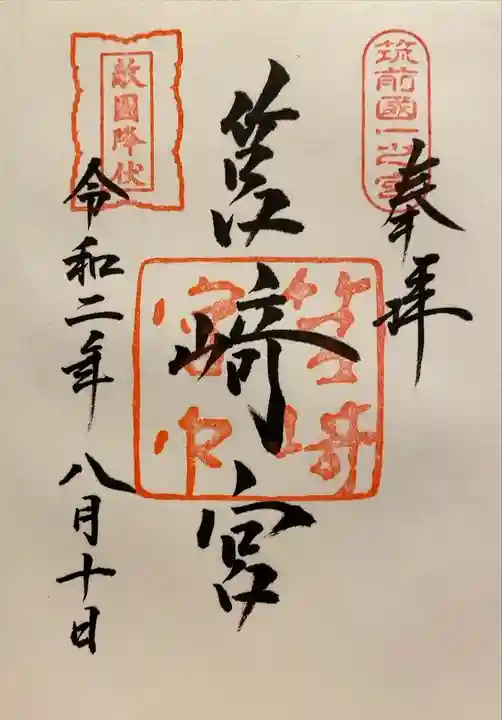 筑前國一之宮
奉拝
筥崎宮
敵國降伏
令和二年八月十日